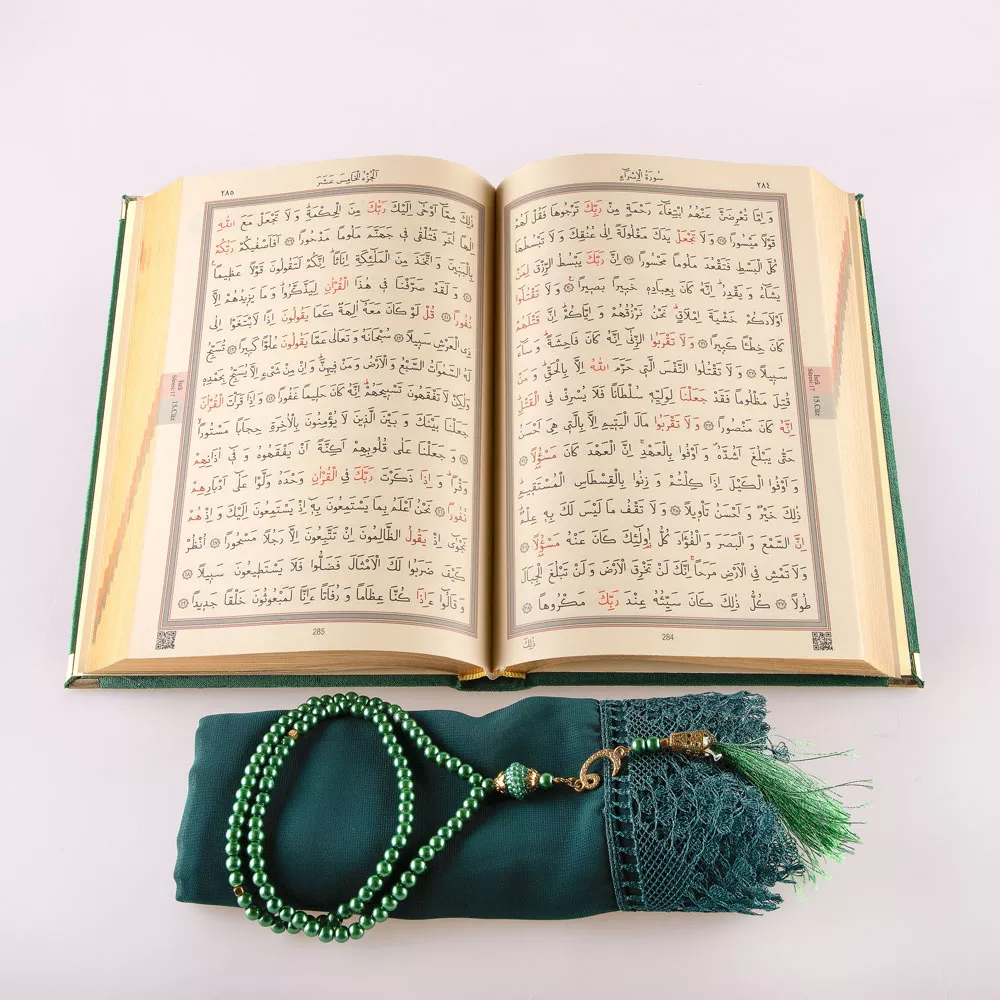 سُورَةُ الْاِسْرَاءِ
٢٨٤
وَ اِمَّا تُعْرِضَنَّ عَنْهُمُ ابْتِغَٓاءَ رَحْمَةٍ مِنْ رَبِّكَ تَرْجُوهَا فَقُلْ لَهُمْ
قَوْلًا مَيْسُورًا ﴿٢٨﴾ وَلَا تَجْعَلْ يَدَكَ مَغْلُولَةً اِلٰى عُنُقِكَ وَلَا تَبْسُطْهَا
كُلَّ الْبَسْطِ فَتَقْعُدَ مَلُومًا مَحْسُورًا ﴿٢٩﴾ اِنَّ رَبَّكَ يَبْسُطُ الرِّزْقَ لِمَنْ
يَشَٓاءُ وَ يَقْدِرُ اِنَّهُ كَانَ بِعِبَادِهِ خَبِيرًا بَصِيرًا ﴿٣٠﴾ وَلَا تَقْتُلُٓوا
اَوْلَادَكُمْ خَشْيَةَ اِمْلَاقٍ نَحْنُ نَرْزُقُهُمْ وَ اِيَّاكُمْ اِنَّ قَتْلَهُمْ
كَانَ خِطْـًٔا كَبِيرًا ﴿٣١﴾ وَلَا تَقْرَبُوا الزِّنٰٓى اِنَّهُ كَانَ فَاحِشَةً وَ سَٓاءَ
سَبِيلًا ﴿٣٢﴾ وَلَا تَقْتُلُوا النَّفْسَ الَّتِى حَرَّمَ اللّٰهُ اِلَّا بِالْحَقِّ وَ مَنْ
قُتِلَ مَظْلُومًا فَقَدْ جَعَلْنَا لِوَلِيِّهِ سُلْطَانًا فَلَا يُسْرِفْ فِى الْقَتْلِ
اِنَّهُ كَانَ مَنْصُورًا ﴿٣٣﴾ وَلَا تَقْرَبُوا مَالَ الْيَتِيمِ اِلَّا بِالَّتِى هِىَ اَحْسَنُ
حَتّٰى يَبْلُغَ اَشُدَّهُ وَ اَوْفُوا بِالْعَهْدِ اِنَّ الْعَهْدَ كَانَ مَسْؤُلًا ﴿٣٤﴾
وَ اَوْفُوا الْكَيْلَ اِذَا كِلْتُمْ وَ زِنُوا بِالْقِسْطَاسِ الْمُسْتَقِيمِ
ذٰلِكَ خَيْرٌ وَ اَحْسَنُ تَأْوِيلًا ﴿٣٥﴾ وَلَا تَقْفُ مَا لَيْسَ لَكَ بِهِ عِلْمٌ
اِنَّ السَّمْعَ وَ الْبَصَرَ وَ الْفُؤَادَ كُلُّ اُولٰٓئِكَ كَانَ عَنْهُ مَسْؤُلًا ﴿٣٦﴾
وَلَا تَمْشِ فِى الْاَرْضِ مَرَحًا اِنَّكَ لَنْ تَخْرِقَ الْاَرْضَ وَ لَنْ تَبْلُغَ الْجِبَالَ
طُولًا ﴿٣٧﴾ كُلُّ ذٰلِكَ كَانَ سَيِّئُهُ عِنْدَ رَبِّكَ مَكْرُوهًا ﴿٣٨﴾
ذٰلِكَ
284
İsrâ
Sûresi 17
15.Cüz
اَلْجُزْءُ الْخَامِسَ عَشَرَ
٢٨٥
ذٰلِكَ مِمَّٓا اَوْحٰٓى اِلَيْكَ رَبُّكَ مِنَ الْحِكْمَةِ وَلَا تَجْعَلْ مَعَ اللّٰهِ
اِلٰهًا اٰخَرَ فَتُلْقٰى فِى جَهَنَّمَ مَلُومًا مَدْحُورًا ﴿٣٩﴾ اَفَاَصْفٰيكُمْ رَبُّكُمْ
بِالْبَنِينَ وَ اتَّخَذَ مِنَ الْمَلٰٓئِكَةِ اِنَاثًا اِنَّكُمْ لَتَقُولُونَ قَوْلًا عَظِيمًا
﴿٤٠﴾ وَ لَقَدْ صَرَّفْنَا فِى هٰذَا الْقُرْاٰنِ لِيَذَّكَّرُوا وَ مَا يَزِيدُهُمْ اِلَّا
نُفُورًا ﴿٤١﴾ قُلْ لَوْ كَانَ مَعَهُ اٰلِهَةٌ كَمَا يَقُولُونَ اِذًا لَابْتَغَوْا اِلٰى
ذِى الْعَرْشِ سَبِيلًا ﴿٤٢﴾ سُبْحَانَهُ وَ تَعَالٰى عَمَّا يَقُولُونَ عُلُوًّا كَبِيرًا ﴿٤٣﴾ تُسَبِّحُ
لَهُ السَّمٰوَاتُ السَّبْعُ وَ الْاَرْضُ وَ مَنْ فِيهِنَّ وَ اِنْ مِنْ شَىْءٍ اِلَّا يُسَبِّحُ بِحَمْدِهِ
وَلٰكِنْ لَا تَفْقَهُونَ تَسْبِيحَهُمْ اِنَّهُ كَانَ حَلِيمًا غَفُورًا ﴿٤٤﴾ وَ اِذَا قَرَأْتَ الْقُرْاٰنَ
جَعَلْنَا بَيْنَكَ وَ بَيْنَ الَّذِينَ لَا يُؤْمِنُونَ بِالْاٰخِرَةِ حِجَابًا مَسْتُورًا
﴿٤٥﴾ وَ جَعَلْنَا عَلٰى قُلُوبِهِمْ اَكِنَّةً اَنْ يَفْقَهُوهُ وَ فِٓى اٰذَانِهِمْ
وَقْرًا وَ اِذَا ذَكَرْتَ رَبَّكَ فِى الْقُرْاٰنِ وَحْدَهُ وَلَّوْا عَلٰٓى اَدْبَارِهِمْ
نُفُورًا ﴿٤٦﴾ نَحْنُ اَعْلَمُ بِمَا يَسْتَمِعُونَ بِهِ اِذْ يَسْتَمِعُونَ اِلَيْكَ وَ اِذْ هُمْ
نَجْوٰٓى اِذْ يَقُولُ الظَّالِمُونَ اِنْ تَتَّبِعُونَ اِلَّا رَجُلًا مَسْحُورًا ﴿٤٧﴾ اُنْظُرْ
كَيْفَ ضَرَبُوا لَكَ الْاَمْثَالَ فَضَلُّوا فَلَا يَسْتَطِيعُونَ سَبِيلًا ﴿٤٨﴾
وَ قَالُٓوا ءَاِذَا كُنَّا عِظَامًا وَ رُفَاتًا ءَاِنَّا لَمَبْعُوثُونَ خَلْقًا جَدِيدًا ﴿٤٩﴾
285
İsrâ
Sûresi 17
15.Cüz